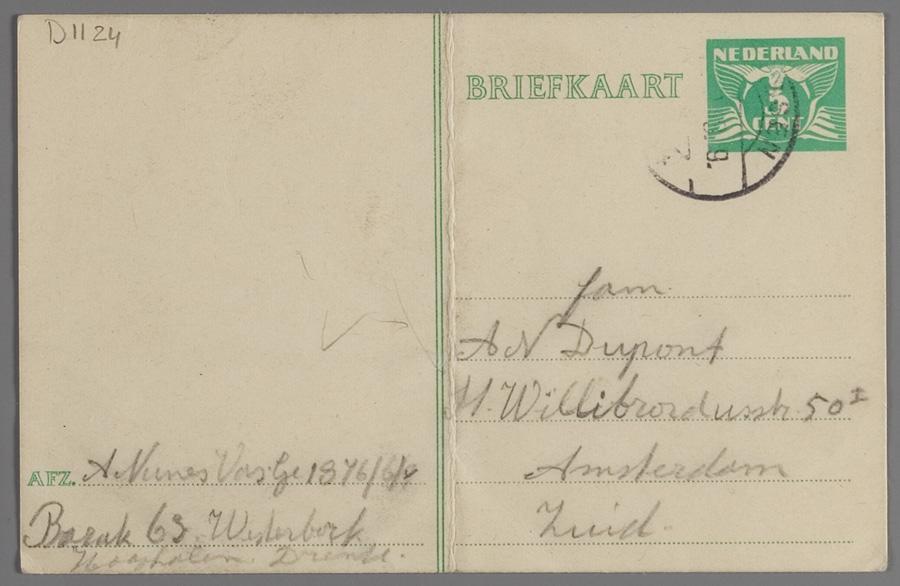 D 1124
BRIEFKAART
NEDERLAND
CENT
fam
A N Dupont
St. Willibrordusstr. 50 I
Amsterdam
Zuid.
AFZ. A Nunes Vas Ge 1876/6/
Barak 63. Westerbork
Hooghalen. Drente.